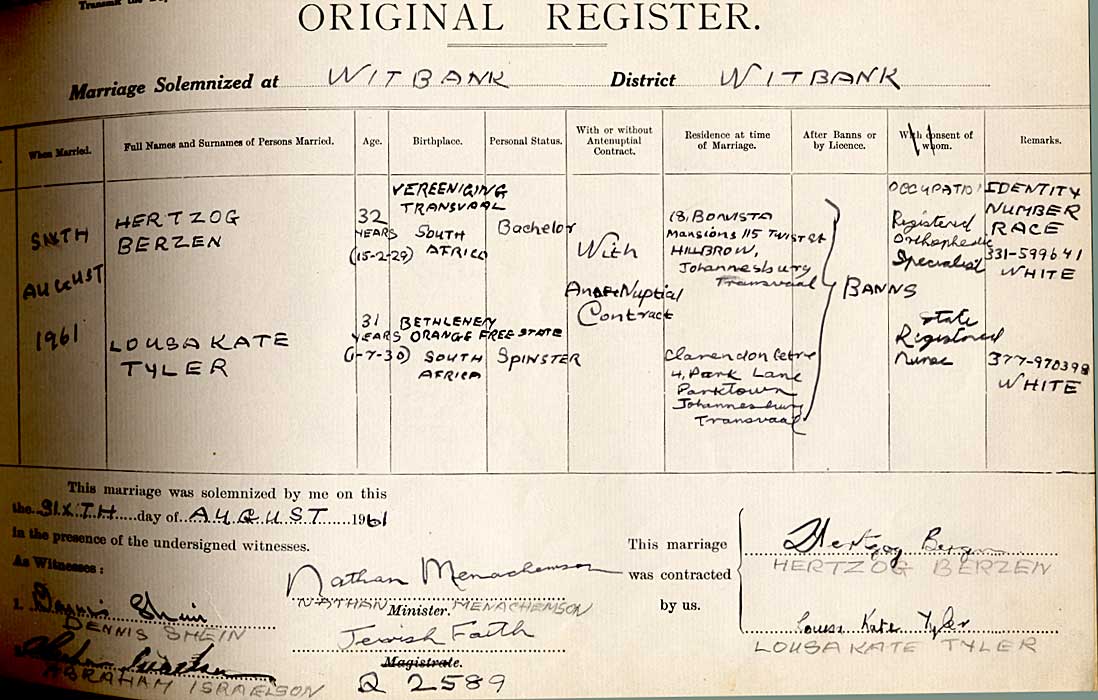 ORIGINAL REGISTER.
Marriage Solemnized at WITBANK District WITBANK
When Married.
Full Names and Surnames of Persons Married.
Age.
Birthplace.
Personal Status.
With or without
Antenuptial
Contract.
Residence at time
of Marriage.
After Banns or
by Licence.
With consent of
whom.
Remarks.
SIXTH
AUGUST
1961
HERTZOG
BERZEN
32
YEARS
(15-2-29)
VEREENIGING
TRANSVAAL
SOUTH
AFRICA
Bachelor
With
Ante Nuptial
Contract
18, BONVISTA
Mansions 115 TWIST ST
HILLBROW,
Johannesburg
Transvaal
BANNS
OCCUPATION
Registered
Orthopedic
Specialist
IDENTITY
NUMBER
RACE
331-599641
WHITE
LOUSA KATE
TYLER
31
YEARS
(1-7-30)
BETHLEHEM
ORANGE FREE STATE
SOUTH
AFRICA
SPINSTER
Clarendon
4, Park Lane
Parktown
Johannesburg
Transvaal
State
Registered
Nurse
377-970398
WHITE
This marriage was solemnized by me on this
the SIXTH day of AUGUST 1961
in the presence of the undersigned witnesses.
As Witnesses:
1. Dennis Shein
DENNIS SHEIN
ABRAHAM ISRAELSON
Nathan Menachemson
NATHAN Minister. MENACHEMSON
Jewish Faith
Magistrate.
Q 2589
This marriage
was contracted
by us.
Hertzog Berzen
HERTZOG BERZEN
Lousa Kate Tyler
LOUSA KATE TYLER